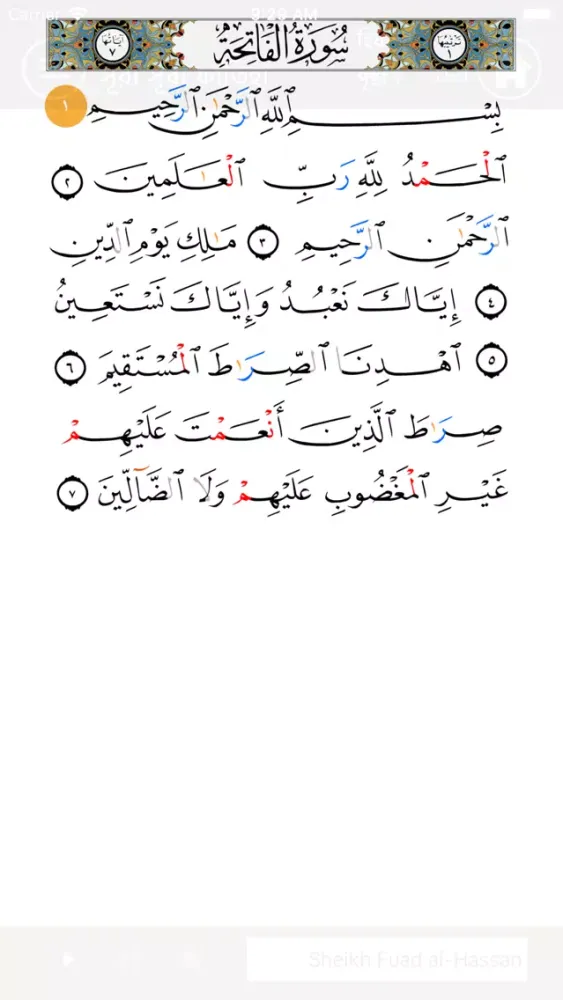 Carrier 3:29 AM
ترتيبها ١
سُورَةُ الْفَاتِحَةِ
آياتها ٧
بِسْمِ ٱللَّهِ ٱلرَّحْمَٰنِ ٱلرَّحِيمِ ١
ٱلْحَمْدُ لِلَّهِ رَبِّ ٱلْعَٰلَمِينَ ٢
ٱلرَّحْمَٰنِ ٱلرَّحِيمِ ٣ مَٰلِكِ يَوْمِ ٱلدِّينِ
٤ إِيَّاكَ نَعْبُدُ وَإِيَّاكَ نَسْتَعِينُ
٥ ٱهْدِنَا ٱلصِّرَٰطَ ٱلْمُسْتَقِيمَ ٦
صِرَٰطَ ٱلَّذِينَ أَنْعَمْتَ عَلَيْهِمْ
غَيْرِ ٱلْمَغْضُوبِ عَلَيْهِمْ وَلَا ٱلضَّآلِّينَ ٧
Sheikh Fuad al-Hassan